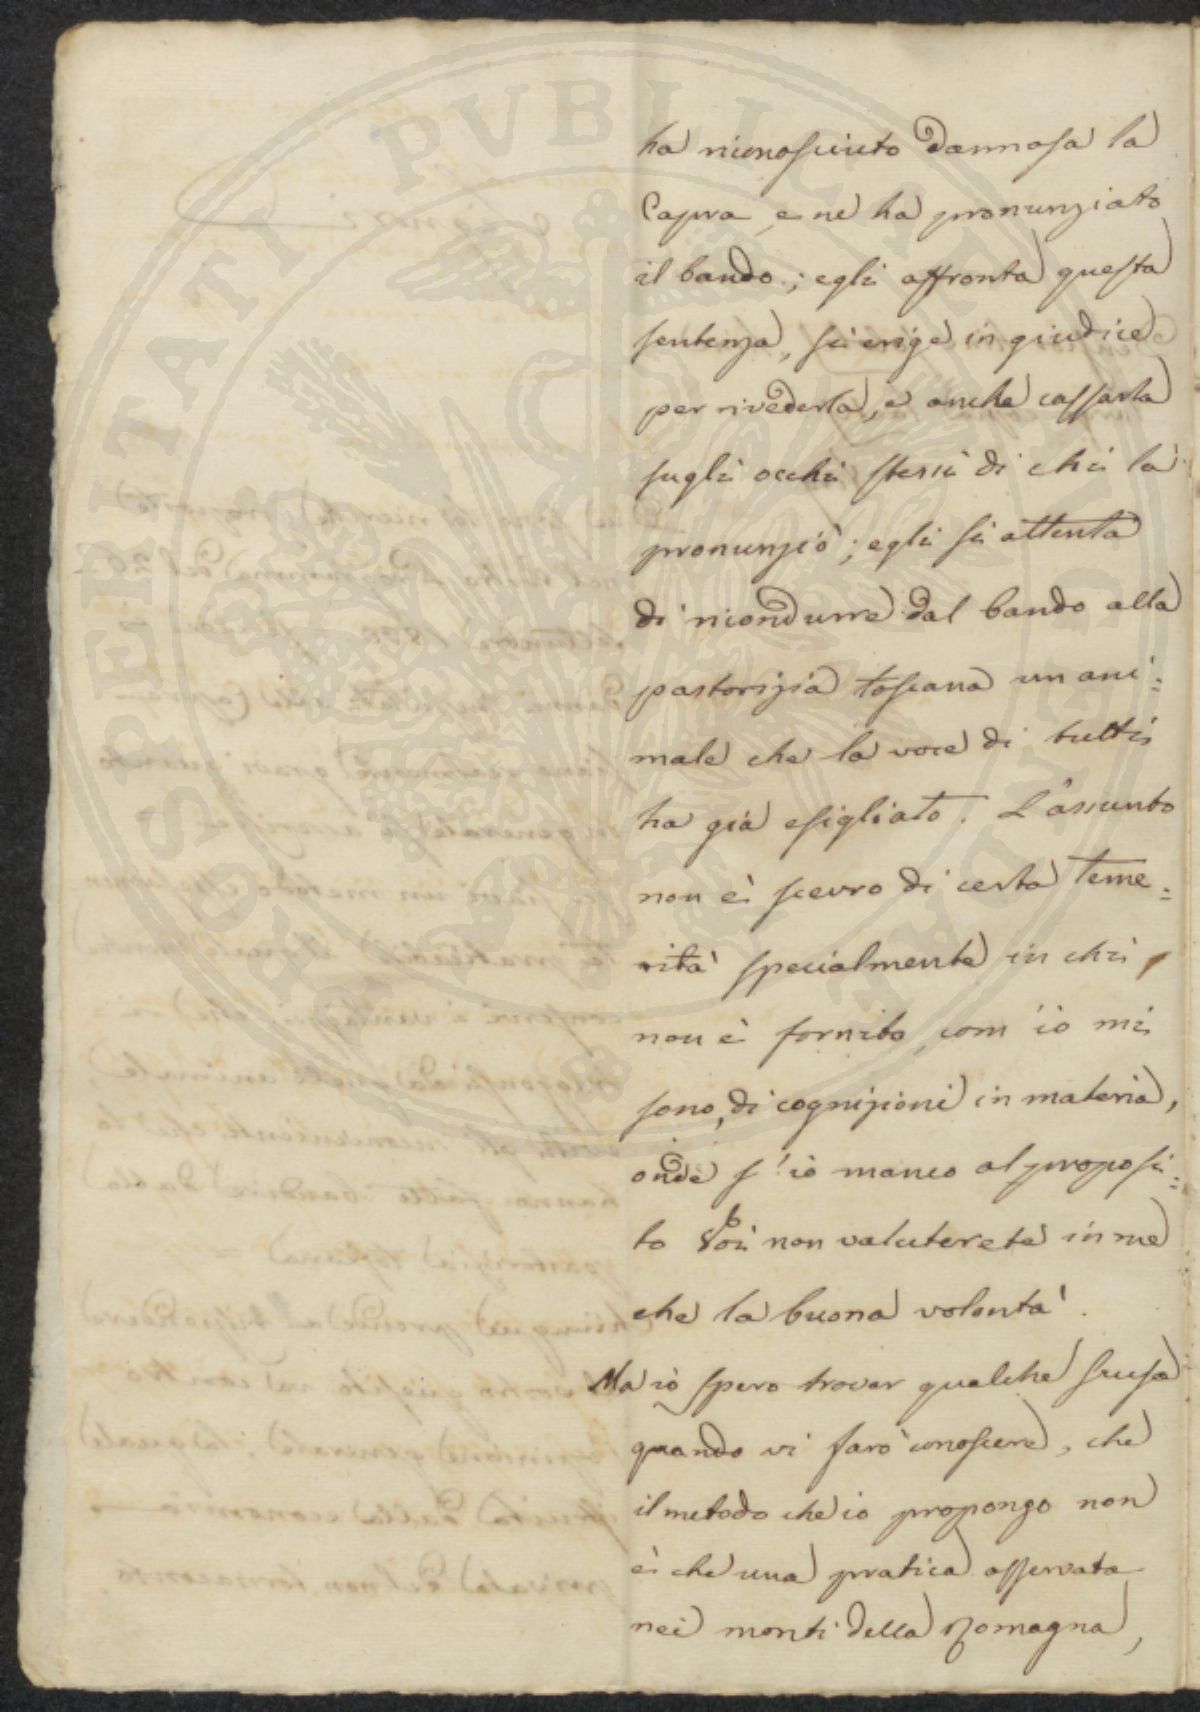 ha riconosciuto dannosa la
Capra, e ne ha pronunziato
il bando; egli affronta questa
sentenza, si erige in giudice
per rivederla, e anche cassarla
sugli occhi stessi di chi la
pronunziò; egli si attenta
di ricondurre dal bando alla
pastorizia toscana un ani=
male che la voce di tutti
ha già esigliato. L'assunto
non è scevro di certa teme=
rità specialmente in chi,
non è fornito, com'io mi
sono, di cognizioni in materia,
onde s'io manco al proposi=
to Voi non valuterete in me
che la buona volontà.
Ma io spero trovar qualche scusa
quando vi farò conoscere, che
il metodo che io propongo non
è che una pratica osservata
nei monti della Romagna,